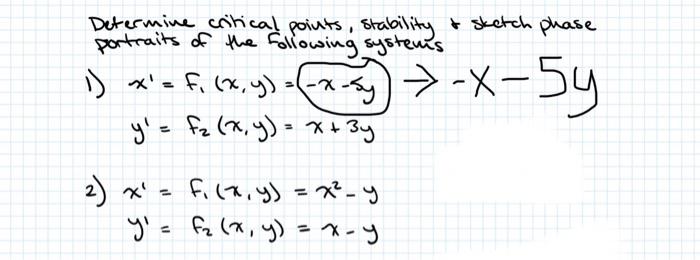 Determine critical points, stability & sketch phase
portraits of the following systems
1) x' = f₁(x,y) = -x-5y → -x-5y
y' = f₂(x,y) = x+3y
2) x' = f₁(x,y) = x²-y
y' = f₂(x,y) = x-y